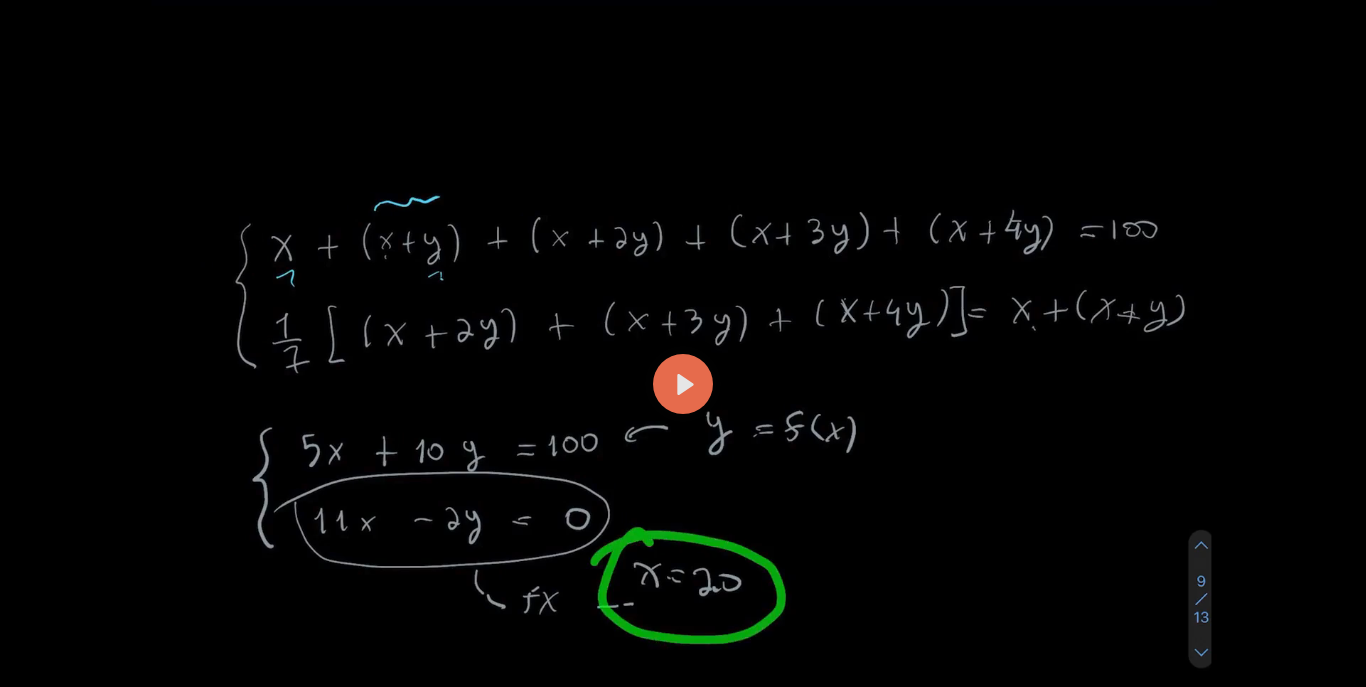 x + (x+y) + (x+2y) + (x+3y) + (x+4y) = 100
1/7 [(x+2y) + (x+3y) + (x+4y)] = x+(x+y)
5x + 10y = 100 ← y = f(x)
11x - 2y = 0
x = 20
9
/
13